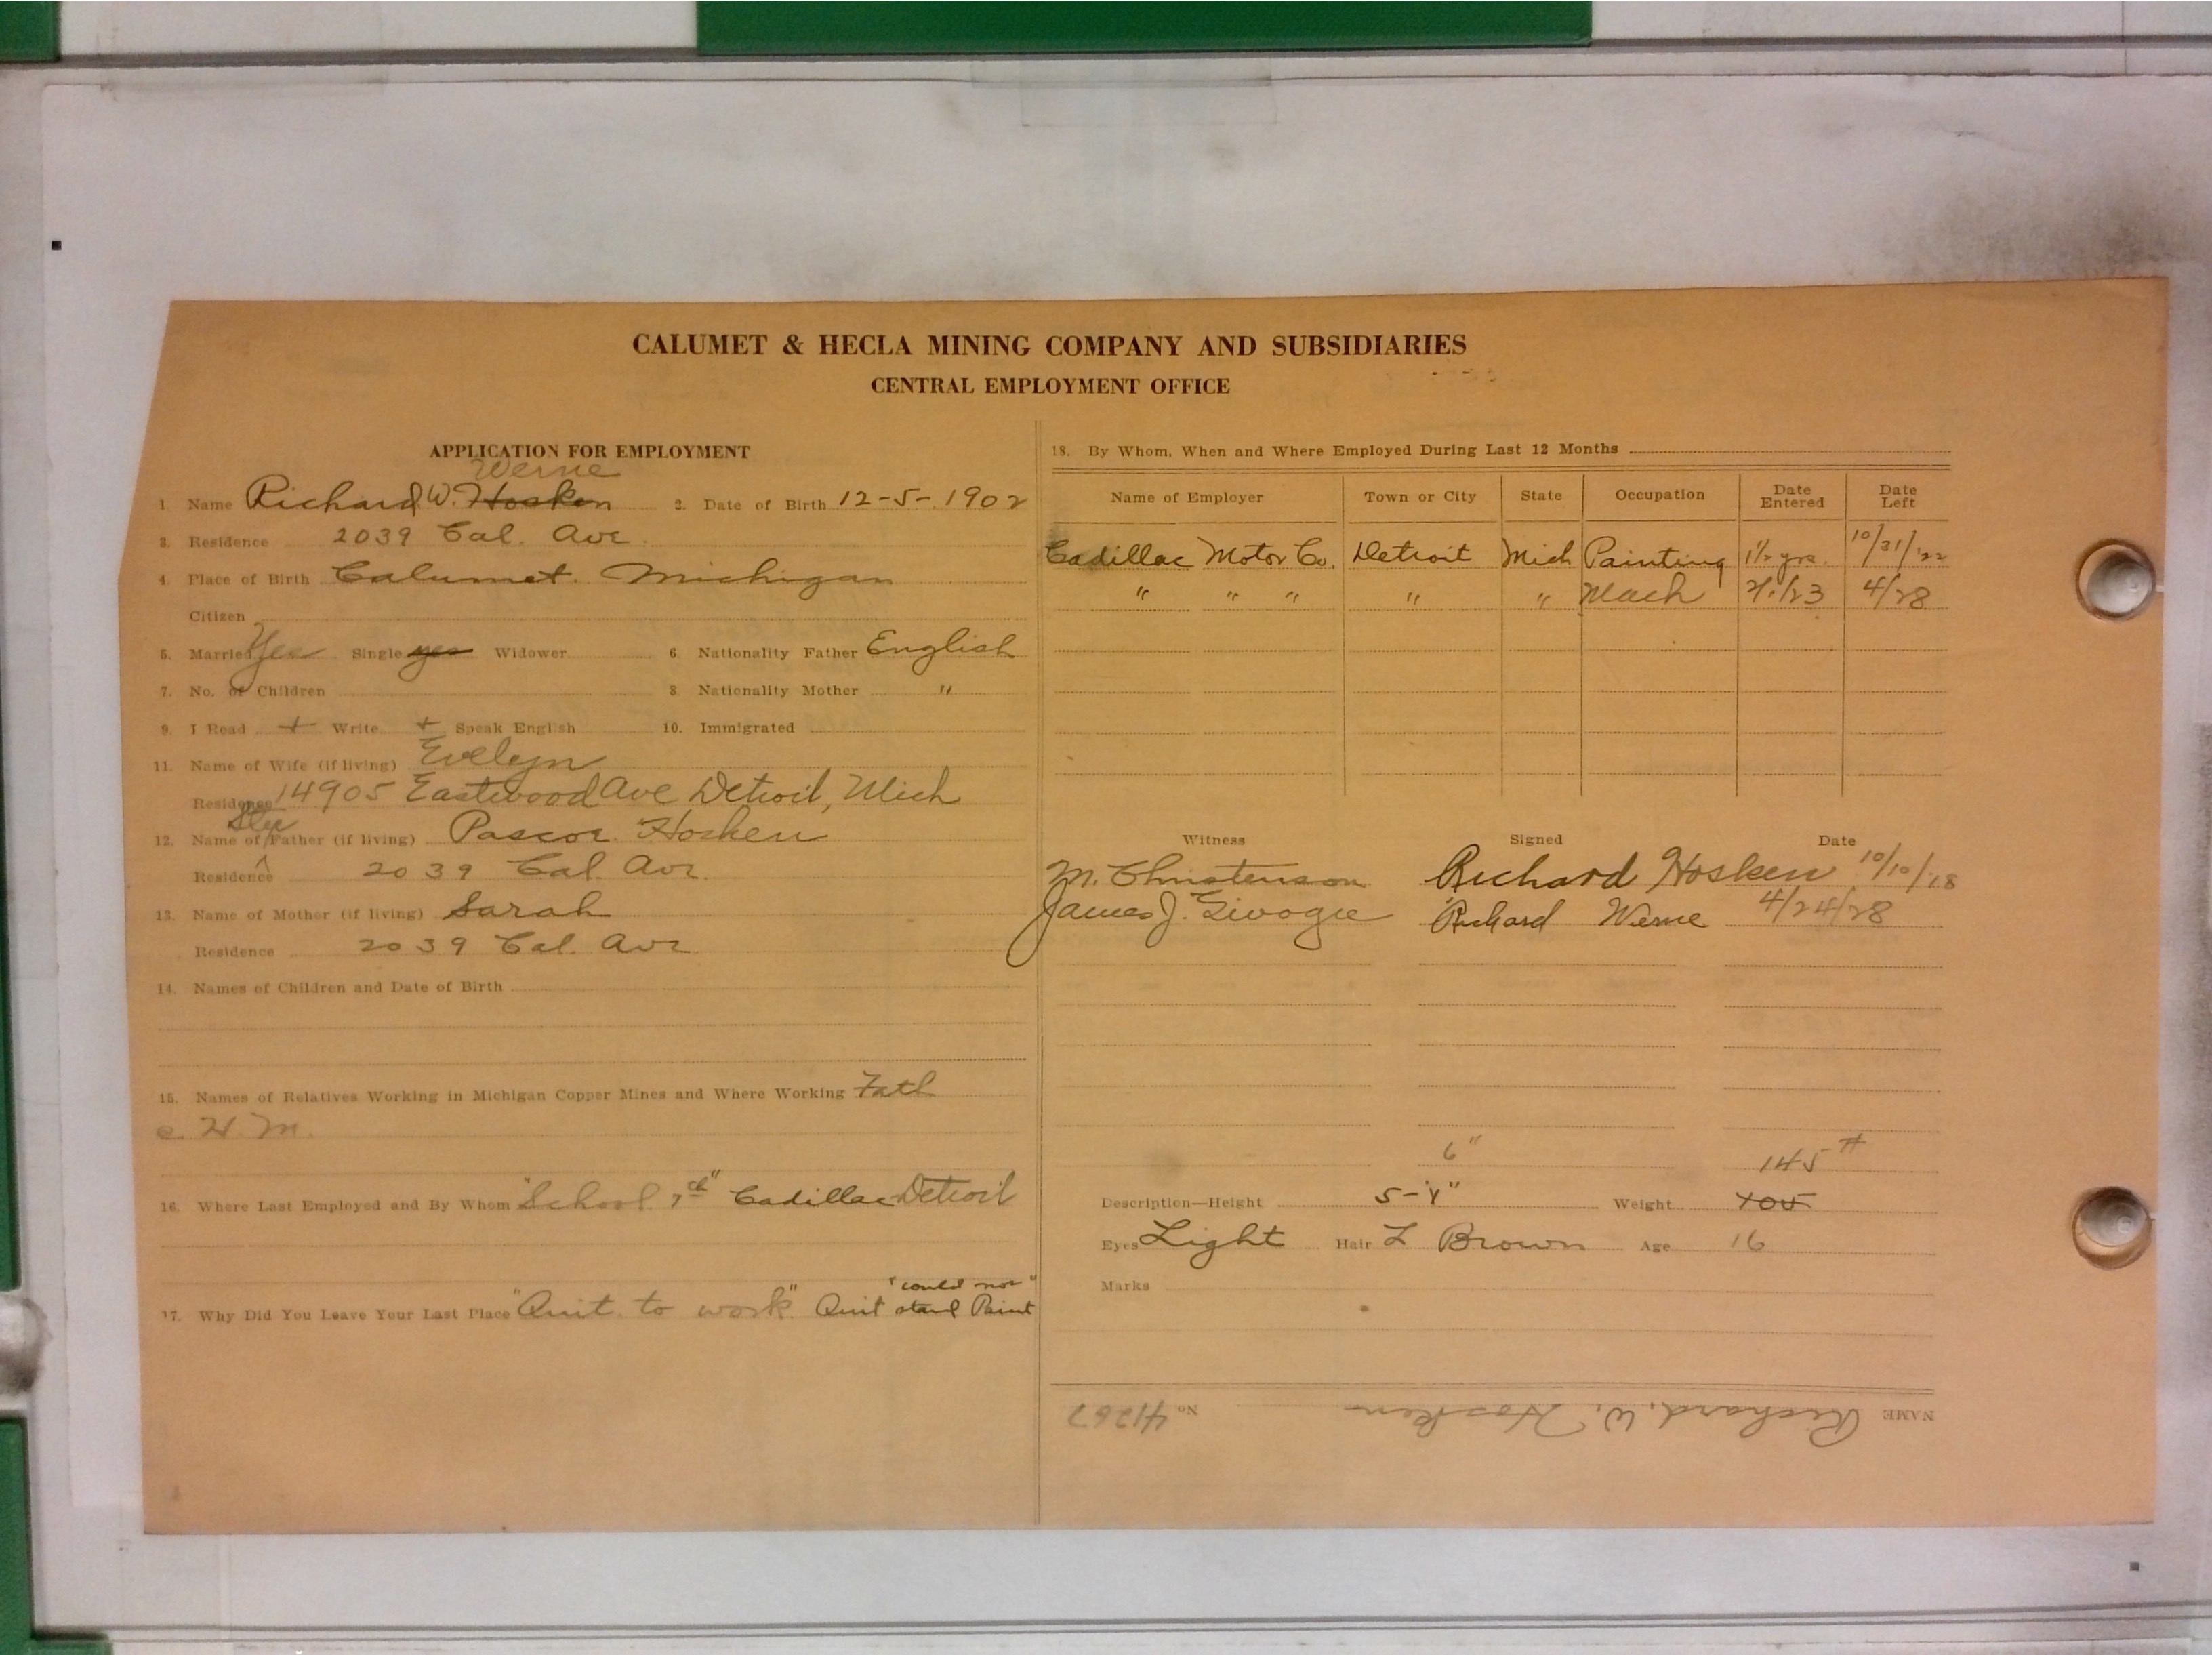 CALUMET & HECLA MINING COMPANY AND SUBSIDIARIES
CENTRAL EMPLOYMENT OFFICE
APPLICATION FOR EMPLOYMENT
Werne
1. Name Richard W. Hosken 2. Date of Birth 12-5-1902
3. Residence 2039 Cal. Ave
4. Place of Birth Calumet. Michigan
Citizen
5. Married Yes Single yes Widower 6. Nationality Father English
7. No. of Children 8. Nationality Mother "
9. I Read + Write + Speak English 10. Immigrated
11. Name of Wife (if living) Evelyn
Residence 14905 Eastwood Ave Detroit, Mich
Step
12. Name of Father (if living) Pascoe Hosken
Residence 2039 Cal Ave.
13. Name of Mother (if living) Sarah
Residence 2039 Cal. Ave
14. Names of Children and Date of Birth
15. Names of Relatives Working in Michigan Copper Mines and Where Working Fath
C. H. M.
16. Where Last Employed and By Whom "School 7th" Cadillac Detroit
"could not"
17. Why Did You Leave Your Last Place "Quit to work" Quit stand Paint
18. By Whom, When and Where Employed During Last 12 Months
Name of Employer Town or City State Occupation Date Entered Date Left
Cadillac Motor Co. Detroit Mich Painting 1½ yrs. 10/31/'22
" " " " " Mach /23 4/28
Witness Signed Date
M. Christenson Richard Hosken 10/10/18
James J. Richard Werne 4/24/28
6" 145#
Description—Height 5-4" Weight 105
Eyes Light Hair L Brown Age 16
Marks
NAME Richard, W. Hosken No. 41267